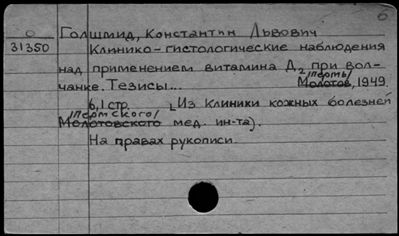 О
Голшмид, Константин Львович
31350
Клинико-гистологические наблюдения
над применением витамина Д₂ при вол-
чанке. Тезисы...
/Пермь/
Молотов, 1949.
6,1 стр. (Из клиники кожных болезней
/Пермского/
Молотовского мед. ин-та).
На правах рукописи.